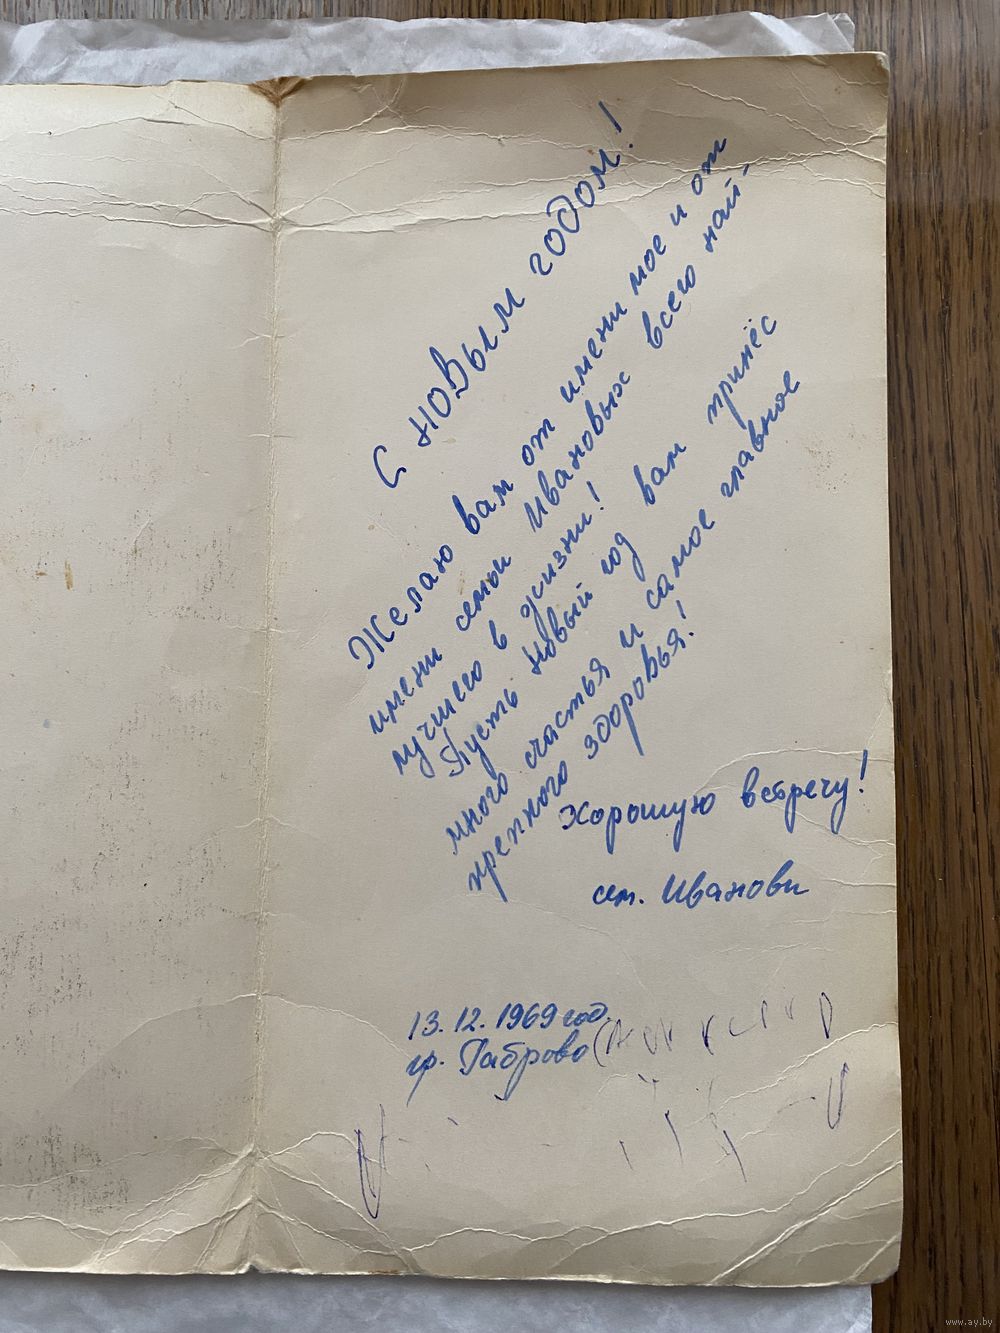 С новым годом!
Желаю вам от имени мое и от
имени семьи Ивановых всего най-
лучшего в жизни!
Пусть Новый год вам принёс
много счастья и самое главное
крепкого здоровья!
Хорошую встречу!
сем. Иванови
13.12.1969 год.
гр. Габрово
www.ay.by